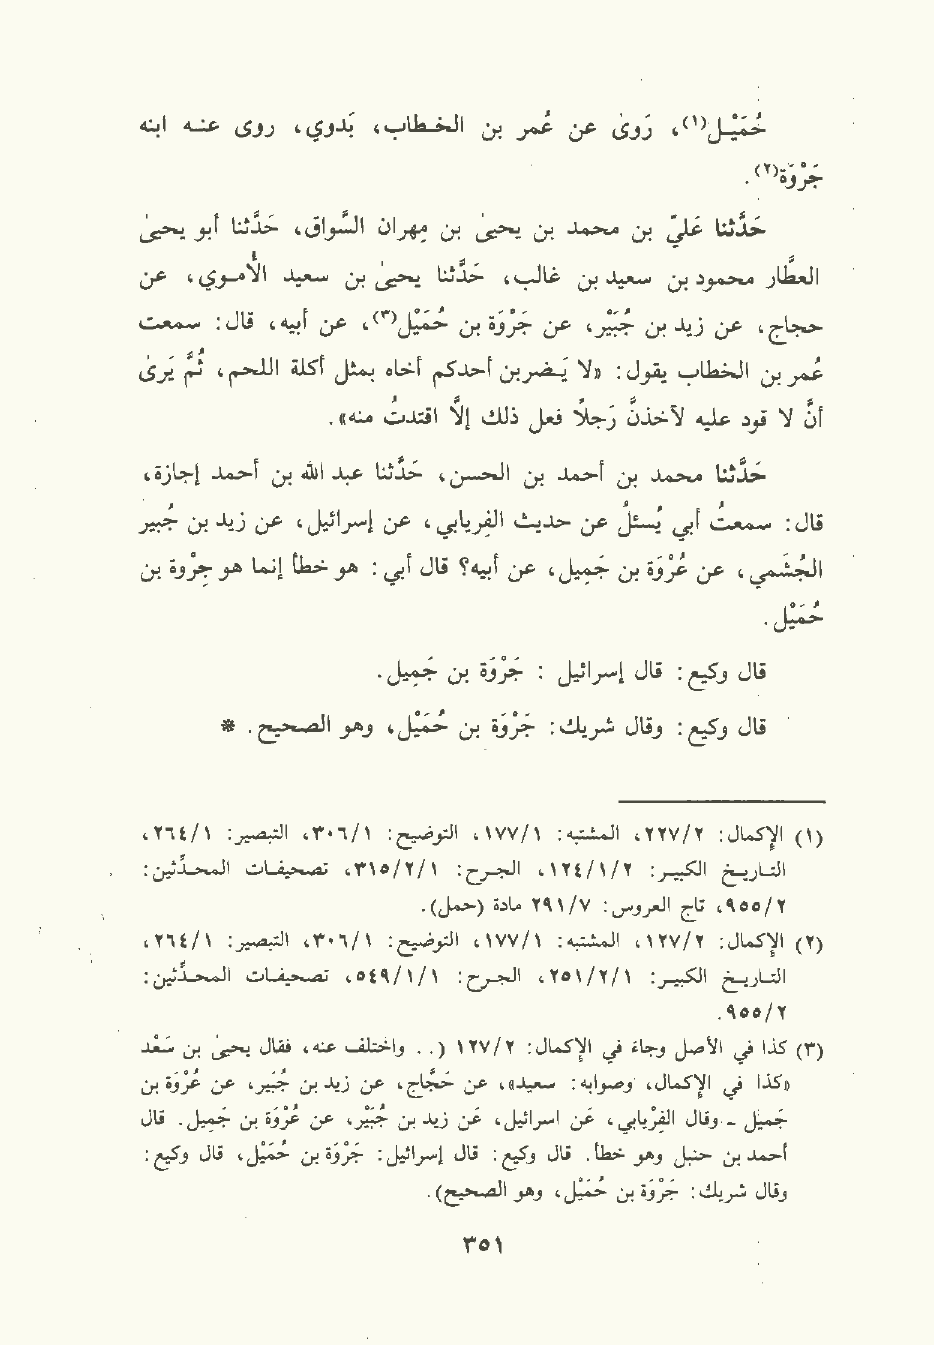 حُمَيْـل(١)، رَوىٰ عن عُمر بن الخـطاب، بَدوي، روى عنـه ابنه
جَرْوَة(٢).
حَدَّثنا عَليّ بن محمـد بن يحيىٰ بن مِهران السَّواق، حَدَّثنا أبو يحيىٰ
العطَّار محمود بن سعيد بن غالب، حَدَّثنا يحيىٰ بن سعيد الأمـوي، عن
حجاج، عن زيد بن جُبَيْر، عن جَرْوَة بن حُمَيْل(٣)، عن أبيه، قال: سمعت
عُمر بن الخطاب يقول: «لا يَـضْربن أحدكم أخاه بمثل أكلة اللحم، ثُمَّ يَرىٰ
أنْ لا قود عليه لآخذنَّ رَجلًا فعل ذلك إلَّا اقتدتُ منه».
حَدَّثنا محمد بن أحمد بن الحسـن، حَدَّثنا عبد الله بن أحمد إجازة،
قال: سمعتُ أبي يُسئلُ عن حديث الفِريابي، عن إسرائيل، عن زيد بن جُبير
الجُشَمي، عن عُرْوَة بن جَمِيل، عن أبيه؟ قال أبي: هو خطأ إنما هو جِرْوة بن
حُمَيْل.
قال وكيع: قال إسرائيل : جَرْوَة بن جَمِيل.
قال وكيع: وقال شريك: جَرْوَة بن حُمَيْل، وهو الصحيح. *
(١) الإكمال: ٢٢٧/٢، المشتبه: ١٧٧/١، التوضيح: ٣٠٦/١، التبصير: ٢٦٤/١،
التـاريـخ الكبيـر: ١٢٤/١/٢، الجـرح: ٣١٥/٢/١، تصحيفـات المحـدِّثين:
٩٥٥/٢، تاج العروس: ٢٩١/٧ مادة (حمل).
(٢) الإكمال: ١٢٧/٢، المشتبه: ١٧٧/١، التوضيح: ٣٠٦/١، التبصير: ٢٦٤/١،
التـاريـخ الكبيـر: ٢٥١/٢/١، الجـرح: ٥٤٩/١/١، تصحيفـات المحـدِّثين:
٩٥٥/٢.
(٣) كذا في الأصل وجاء في الإكمال: ١٢٧/٢ (. . واختلف عنه، فقال يحيىٰ بن سَعْد
«كذا في الإكمال، وصوابه: سعيد»، عن حَجَّاج، عن زيد بن جُبَيْر، عن عُرْوَة بن
جَميل - وقال الفِريابي، عن اسرائيل، عن زيد بن جُبَيْر، عن عُرْوَة بن جَميل. قال
أحمد بن حنبل وهو خطأ. قال وكيع: قال إسرائيل: جَرْوَة بن حُمَيْل، قال وكيع:
وقال شريك: جَرْوَة بن حُمَيْل، وهو الصحيح).
٣٥١